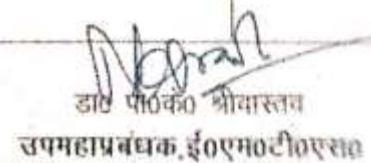 डा० पी०के० श्रीवास्तव
उपमहाप्रबंधक,ई०एम०टी०एस०